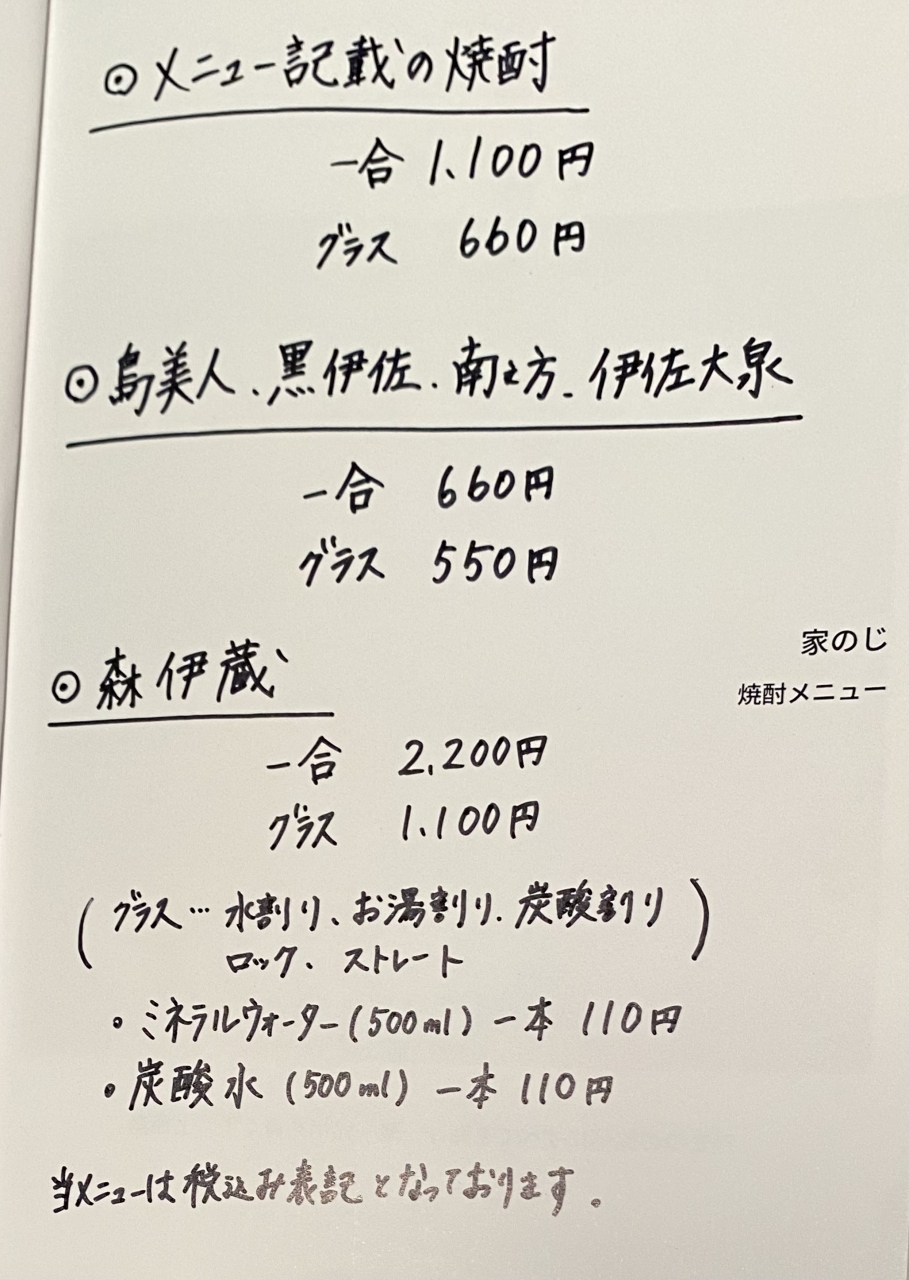 ⊙メニュー記載の焼酎
一合 1,100円
グラス 660円
⊙島美人、黒伊佐、南之方、伊佐大泉
一合 660円
グラス 550円
⊙森伊蔵
一合 2,200円
グラス 1,100円
家のじ
焼酎メニュー
(グラス…水割り、お湯割り、炭酸割り
ロック、ストレート)
・ミネラルウォーター(500ml) 一本 110円
・炭酸水(500ml) 一本 110円
当メニューは税込み表記となっております。